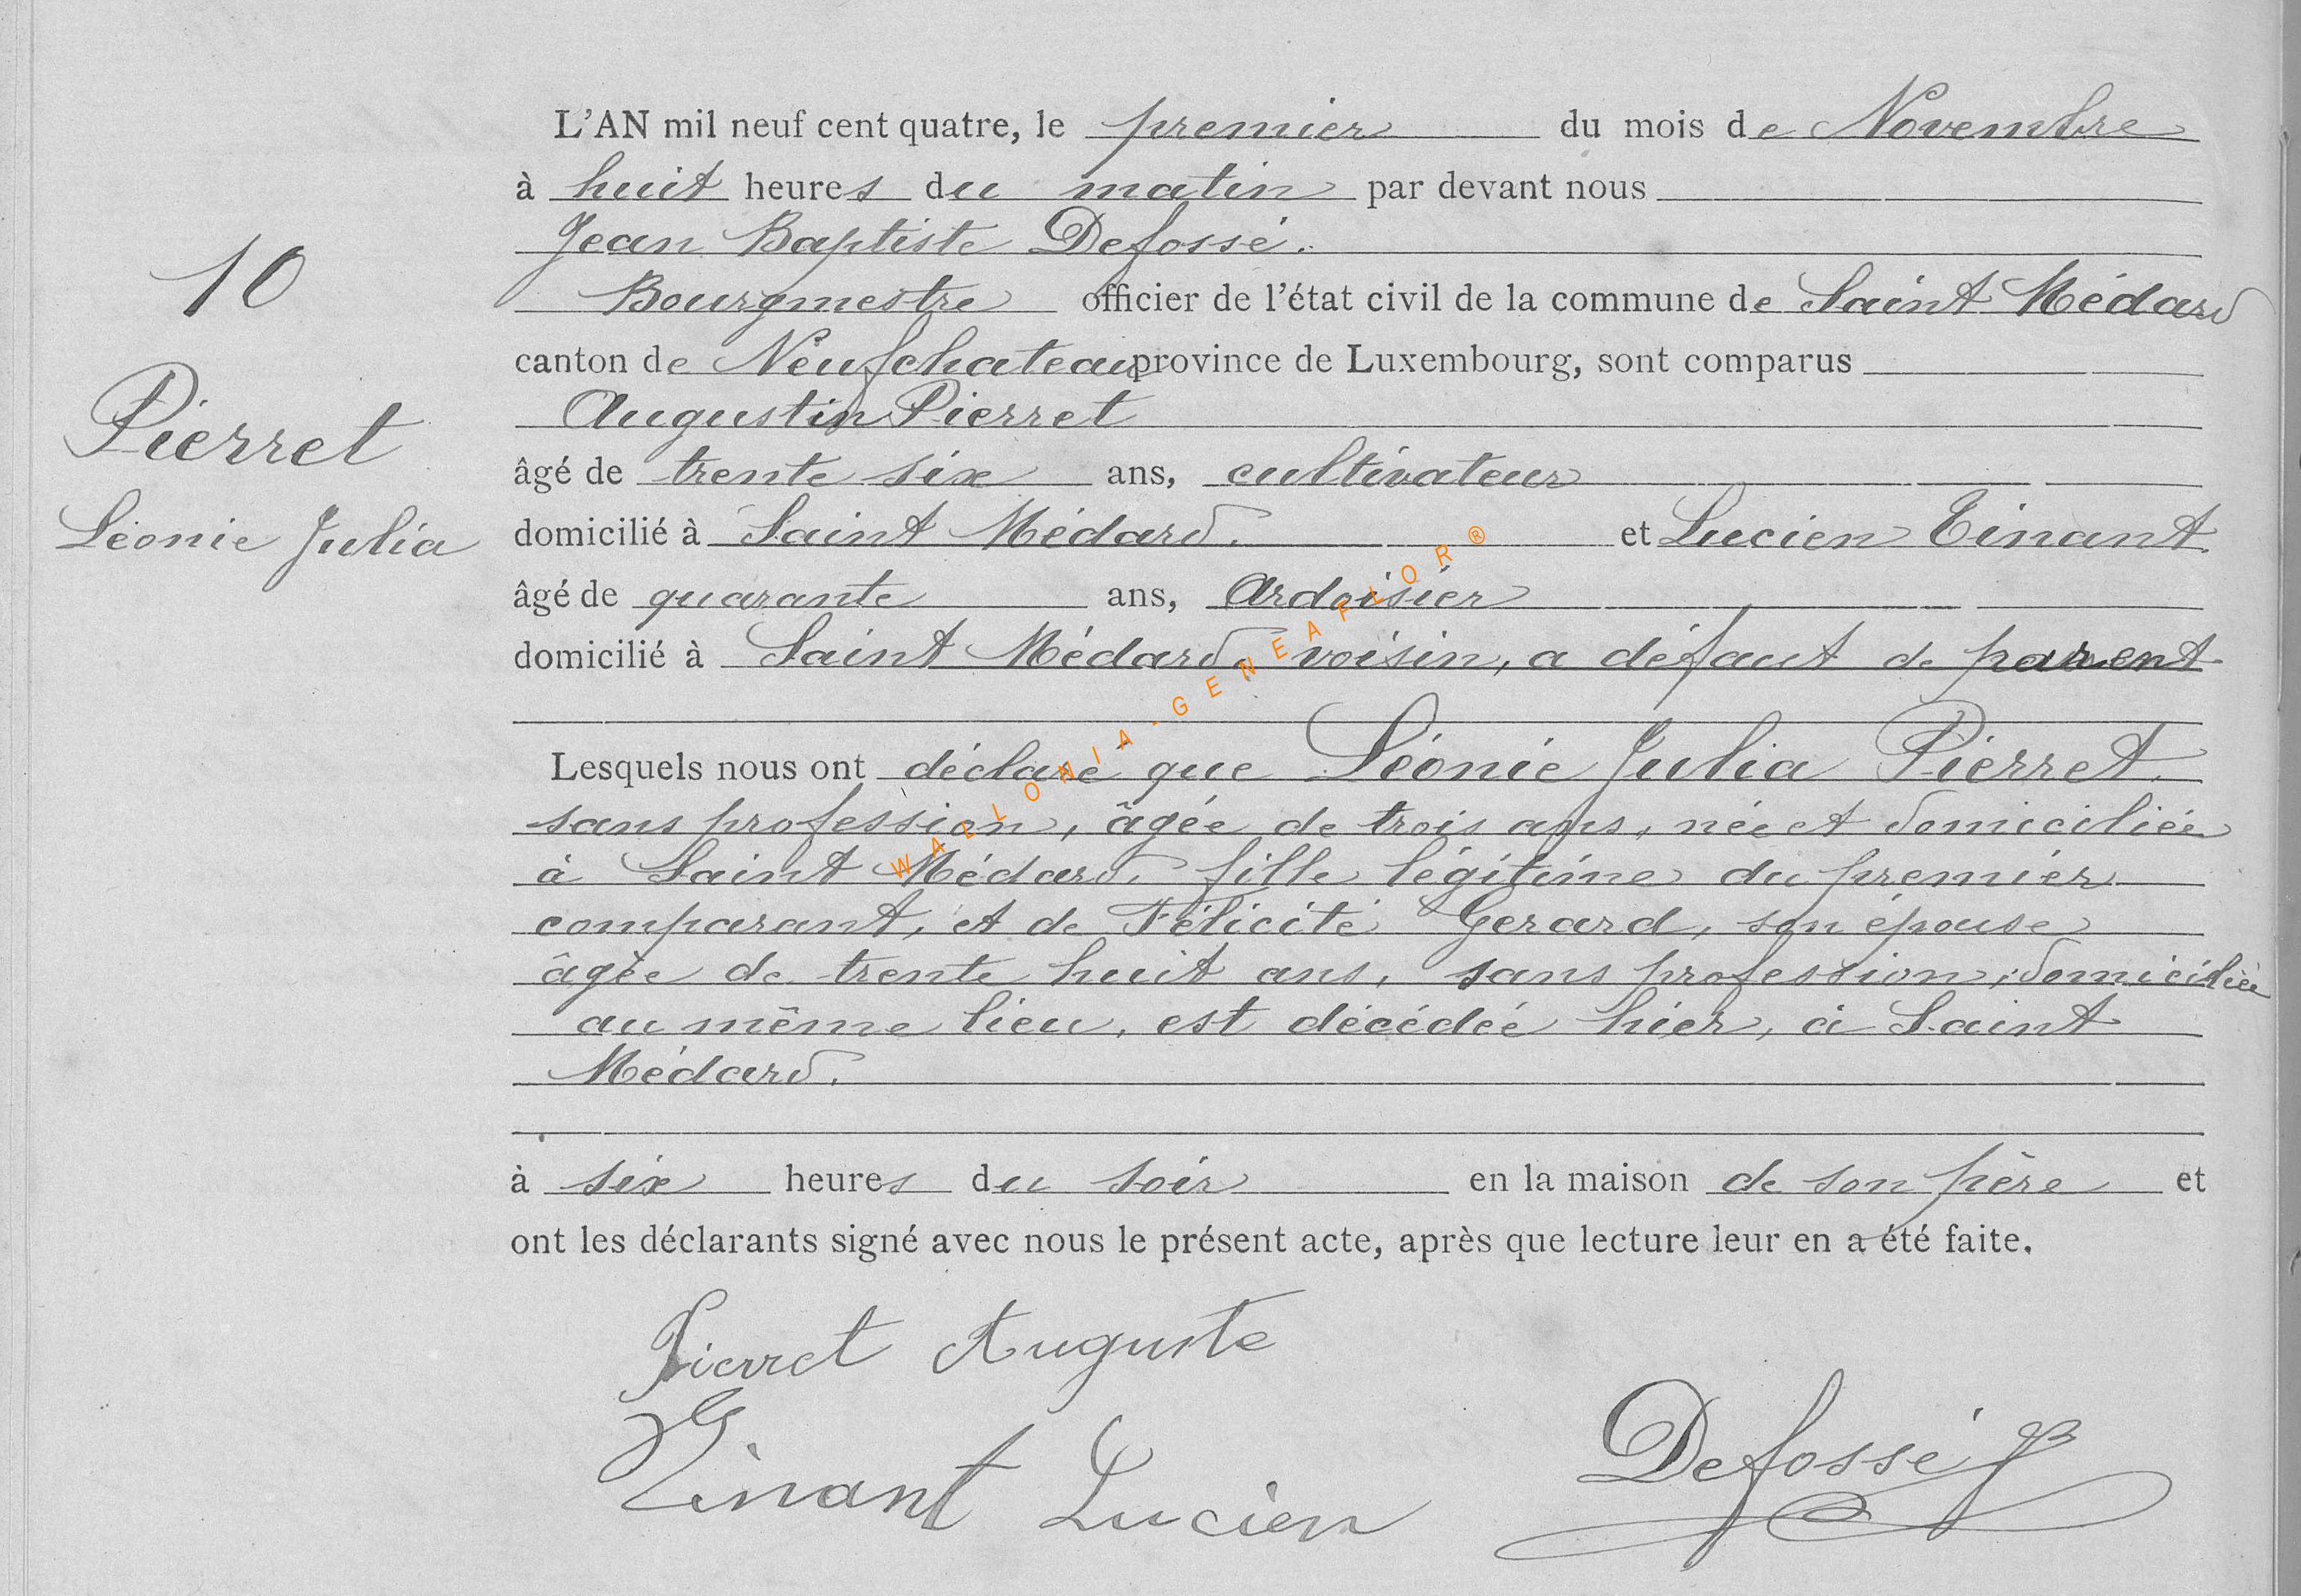 10
Pierret
Léonie Julia
L'AN mil neuf cent quatre, le premier du mois de Novembre
à huit heures du matin par devant nous
Jean Baptiste Defossé.
Bourgmestre officier de l'état civil de la commune de Saint Médard
canton de Neufchateau province de Luxembourg, sont comparus
Augustin Pierret
âgé de trente six ans, cultivateur
domicilié à Saint Médard. et Lucien Tinant.
âgé de quarante ans, Ardoisier
domicilié à Saint Médard, voisin, a défaut de parent
Lesquels nous ont déclaré que Léonie Julia Pierret.
sans profession, âgée de trois ans, née et domiciliée
à Saint Médard, fille légitime du premier
comparant, et de Félicité Gerard, son épouse
âgée de trente huit ans, sans profession, domiciliée
au même lieu, est décédée hier, à Saint
Médard.
à six heures du soir en la maison de son père et
ont les déclarants signé avec nous le présent acte, après que lecture leur en a été faite.
Pierret Auguste
Tinant Lucien
Defossé JB
WALLONIA-GENEAFLOR®